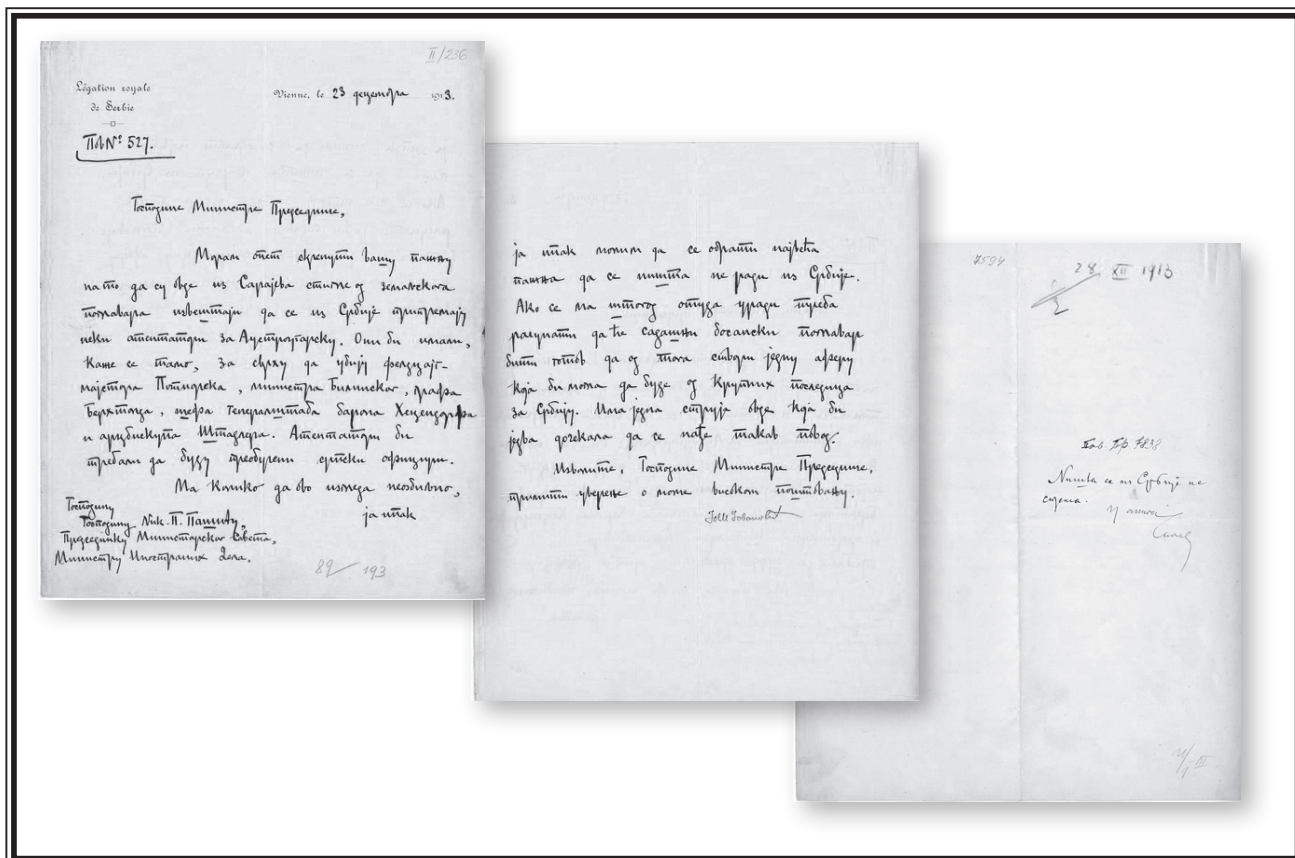 II/236
Légation royale
de Serbie
Vienne, le 23 децембра 1913.
Пов№ 527.
Господине Министре Председниче,
Морам опет скренути вашу пажњу
на то да су овде из Сарајева стигле од земаљскога
поглавара извештаји да се из Србије припремају
неки атентатори за Аустроугарску. Они би имали,
каже се тамо, за сврху да убију фелдцајг-
мајстора Поћиорека, министра Билинског, графа
Берхтолда, шефа генералштаба барона Хецендорфа
и арцибискупа Штадлера. Атентатори би
требали да буду преобучени српски официри.
Ма колико да ово изгледа неозбиљно,
ја ипак
Господину
Господину Ник. П. Пашићу,
Председнику Министарског Савета,
Министру Иностраних Дела.
89/193
ја ипак молим да се обрати највећа
пажња да се ништа не ради из Србије.
Ако се ма штогод отуда уради треба
рачунати да ће садашњи босански поглавар
бити готов да од тога створи једну аферу
која би могла да буде од крупних последица
за Србију. Има једна струја овде која би
једва дочекала да се нађе такав повод.
Изволите, Господине Министре Председниче,
примити уверење о моме високом поштовању.
Јов М Јовановић
7594
28 XII 1913
Пов Бр 7838
Ништа се из Србије не
спрема.